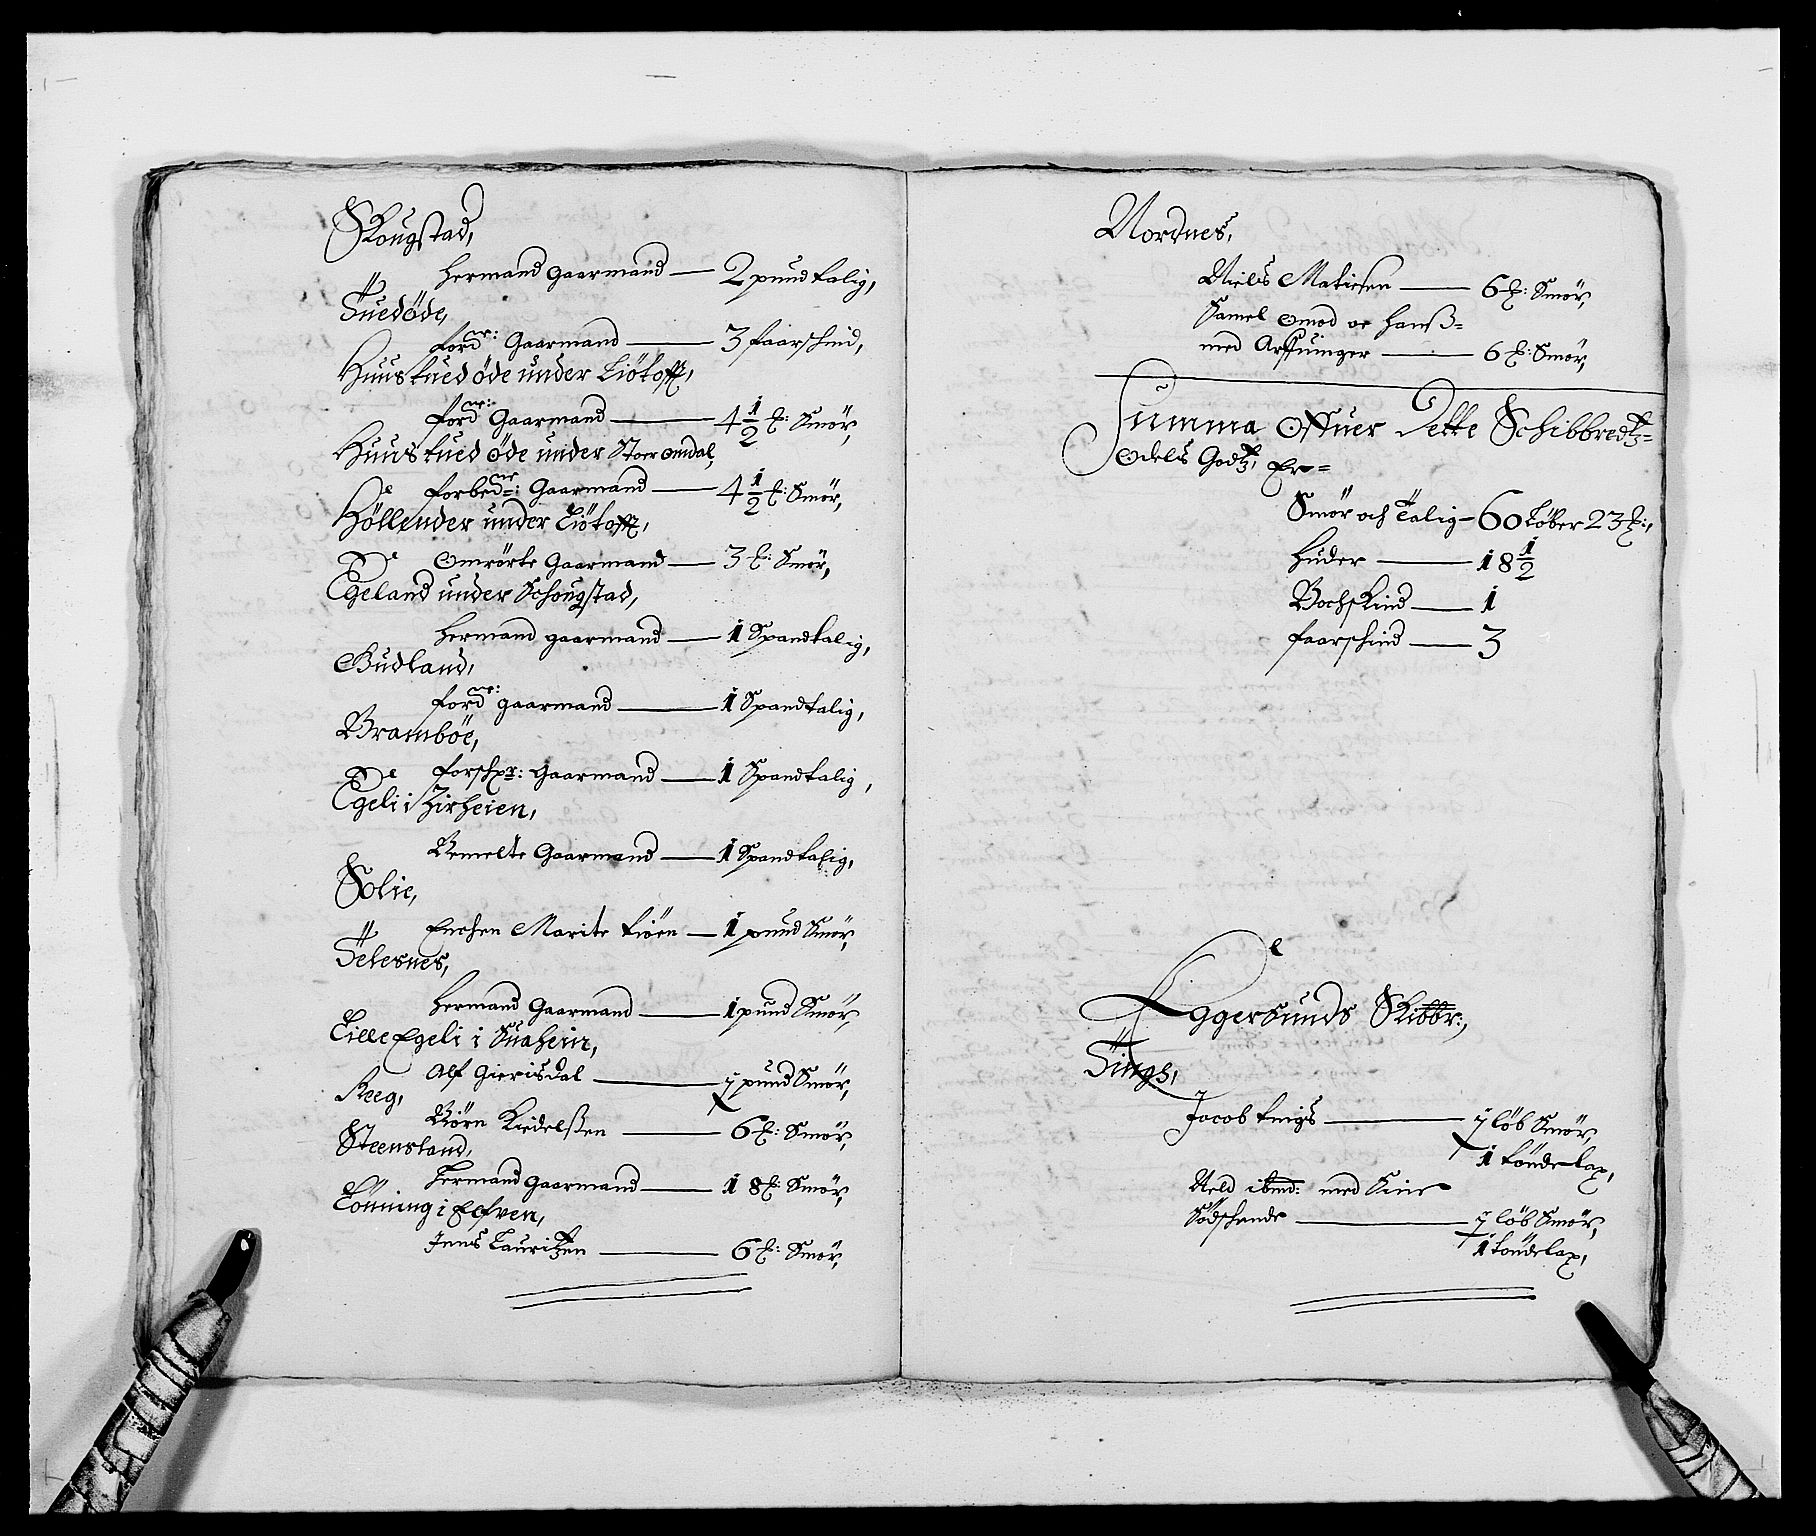 Skougstad,
Hermand Gaarmand — 2 pund talig,
Tuedöde,
ford nr: Gaarmand — 3 faarschind,
Huus tued öde under Liötoff,
ford nr: Gaarmand — 4 1/2 ℔: Smör,
Huus tued öde under Stoer omdal,
forbede nr: Gaarmand — 4 1/2 ℔: Smör,
Höllender under Liötoff,
Omrörte Gaarmand — 3 ℔: Smör,
Egeland under Schougstad,
Hermand gaarmand — 1 Spand talig,
Gudland,
ford nr: gaarmand — 1 Spand talig,
Bramböe,
forschr: Gaarmand — 1 Spand talig,
Egeli i Hirheien,
Bemelte Gaarmand — 1 Spand talig,
Solie,
Enchen Marite tiörn — 1 pund Smör,
Telesnes,
Hermand Gaarmand — 1 pund Smör,
Lille Egeli i Suaheir,
Alf Gierisdal — 1/2 pund Smör,
Reeg,
Biörn Kiedelßen — 6 ℔: Smör,
Steensland,
Hermand Gaarmand — 18 ℔: Smör,
Lönning i Eefven,
Jens Lauritzen — 6 ℔: Smör,
Nordnes,
Niels Matiesen — 6 ℔: Smör,
Samel Omod oc Hanß=
med Arfuinger — 6 ℔: Smör,
Summa Offuer Dette Schibbredtz=
Odels Godtz, Er=
Smör och Talig — 60 Löber 23 ℔:,
Huder — 18 1/2
Bochskind — 1
faarschind — 3
Eggersunds Skibbr:,
Tings,
Jacob tings — 1/2 löb Smör,
1 tönde lax,
Neld ibmd: med Sine
Södschende — 1/2 löb Smör,
1 tönde lax,